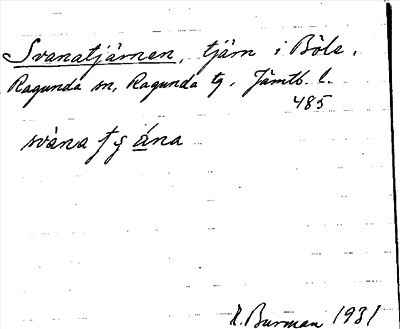 Svanatjärnen, tjärn i Böle,
Ragunda sn, Ragunda tg, Jämtb. l.
485
svána
R. Burman 1931